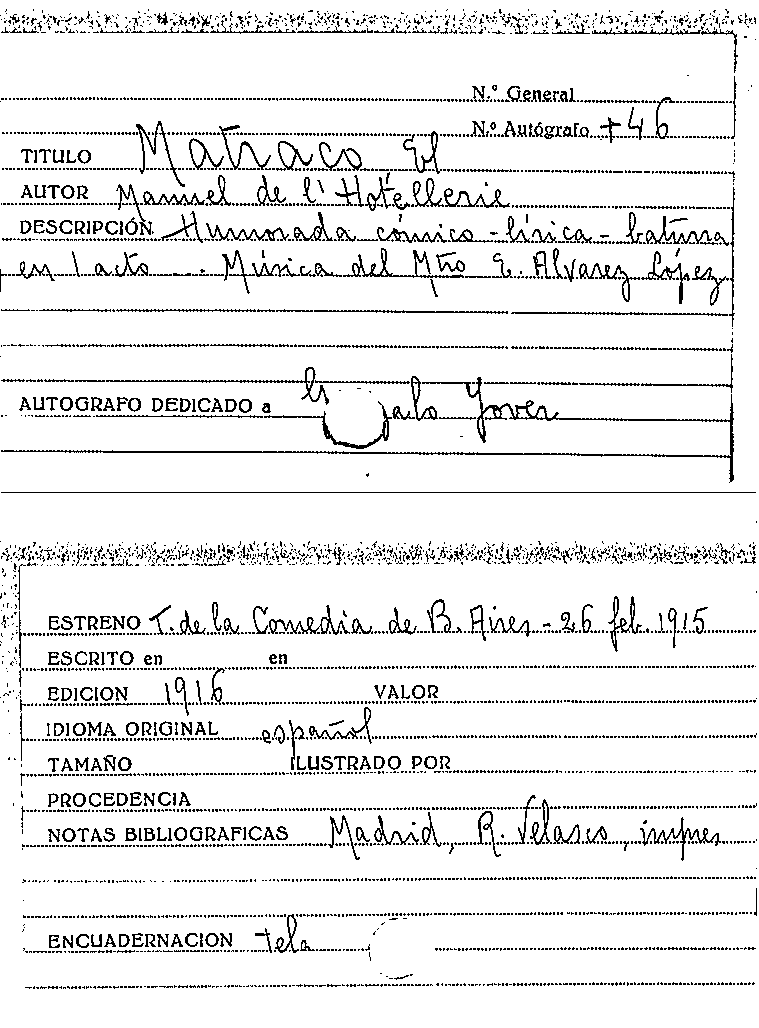 N.º General
N.º Autógrafo +46
TITULO Matraco El
AUTOR Manuel de l'Hotellerie
DESCRIPCIÓN Humorada cómico-lírica-baturra
en 1 acto... Música del Mtro E. Alvarez López
AUTOGRAFO DEDICADO a Jover
ESTRENO T. de la Comedia de B. Aires - 26 feb. 1915
ESCRITO en en
EDICION 1916 VALOR
IDIOMA ORIGINAL español
TAMAÑO ILUSTRADO POR
PROCEDENCIA
NOTAS BIBLIOGRAFICAS Madrid, R. Velasco, impres
ENCUADERNACION tela